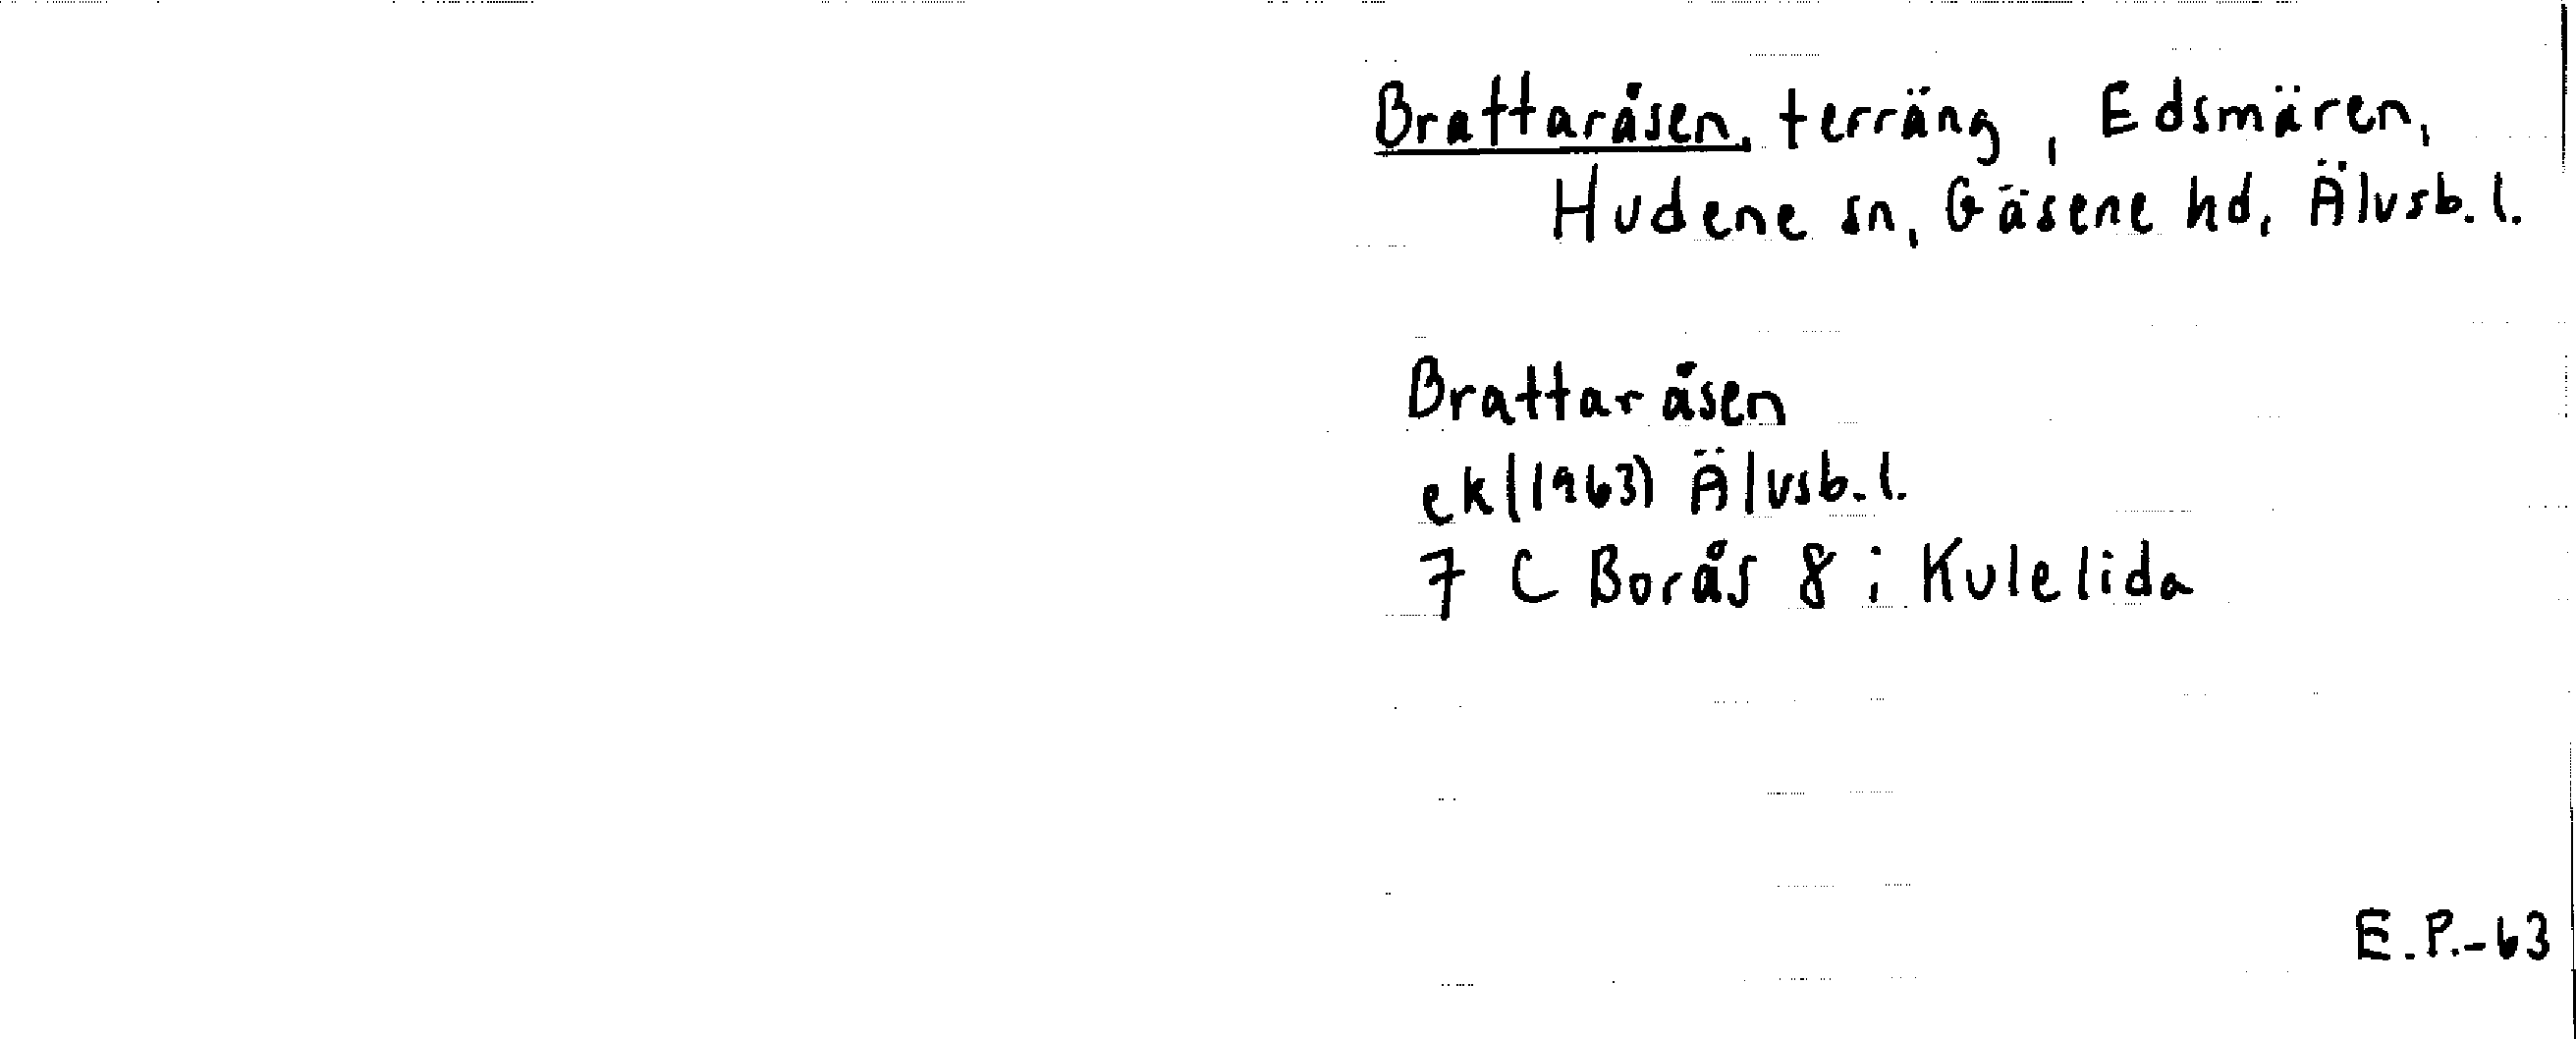 Brattaråsen, terräng, Edsmären,
Hudene sn, Gäsene hd, Älvsb. l.
Brattaråsen
ek (1963) Älvsb. l.
7 C Borås 8 i Kulelida
E.P.-63